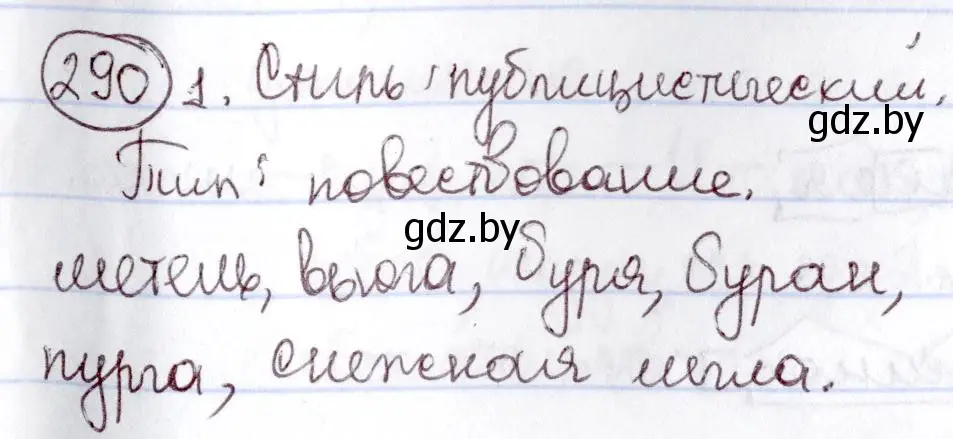 290 1. Стиль: публицистический.
gdz.by
Тип: повествование.
gdz.by
метель, вьюга, буря, буран,
пурга, снежная мгла.